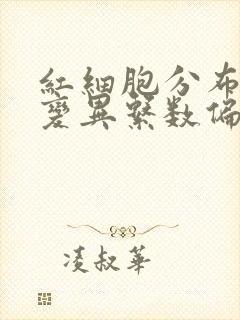 紅細胞分布
變異繫數偏
淩叔華